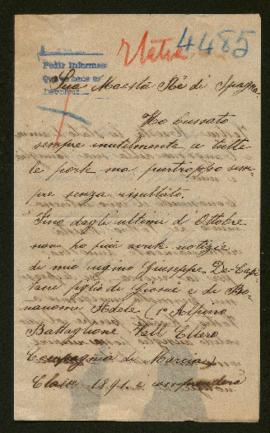 Pedir informes
4485
Sua Maestà Rè di Spagna.
Ho bussato
sempre inutilmente a tutte
le porte ma purtroppo sem-
pre senza risultato.
Fino dagli ultimi d'Ottobre
non ho più avute notizie
di mio cugino Giuseppe De-Capi-
tani figlio di Giosuè e di Bo-
nanomi Adele (5° Alpino
Battaglione Vall
Compagnia di Marcia)
Classe 1891